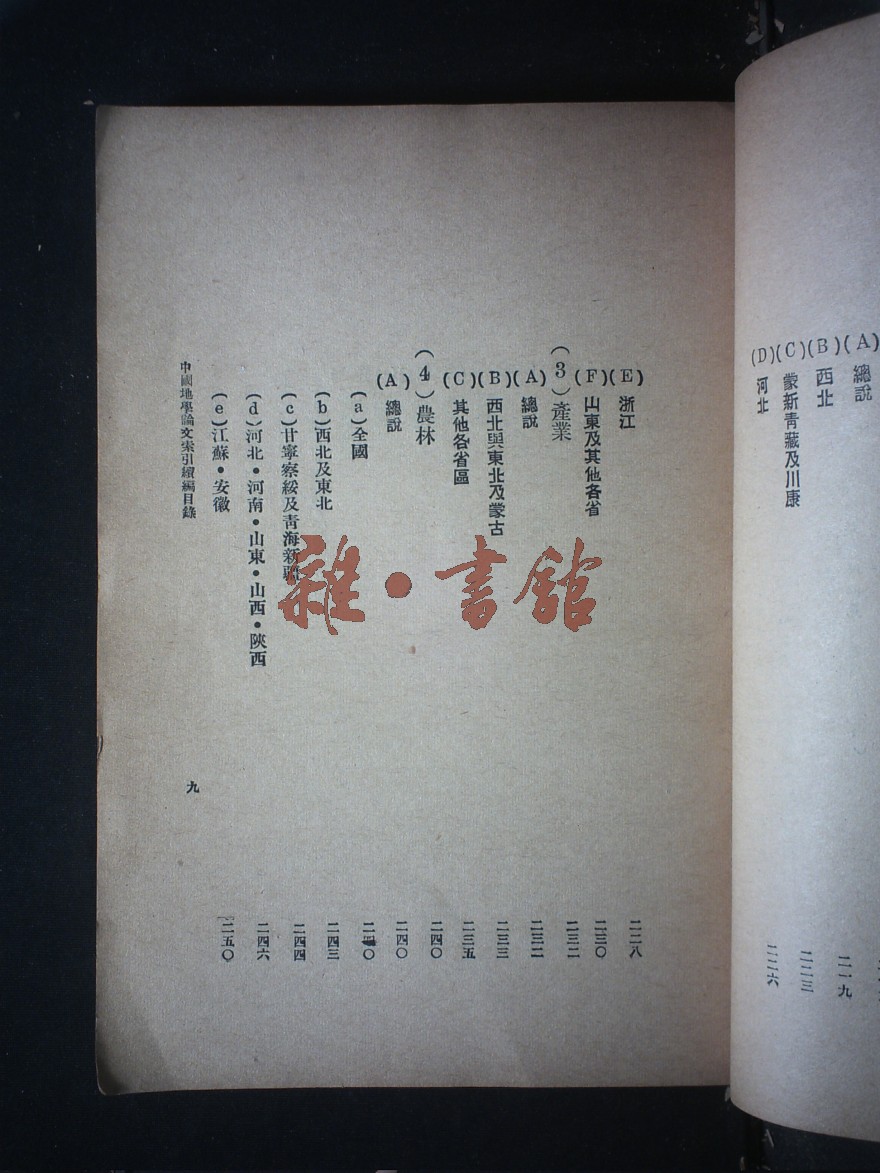 (A)總說
(B)西北 二一九
(C)蒙新青藏及川康 二二三
(D)河北 二二六
(E)浙江 二二八
(F)山東及其他各省 二三〇
(3)產業 二三二
(A)總說 二三二
(B)西北與東北及蒙古 二三三
(C)其他各省區 二三五
(4)農林 二四〇
(A)總說 二四〇
(a)全國 二四〇
(b)西北及東北 二四三
(c)甘寧察綏及青海新疆 二四四
(d)河北•河南•山東•山西•陝西 二四六
(e)江蘇•安徽 二五〇
中國地學論文索引續編目錄 九
雜•書館